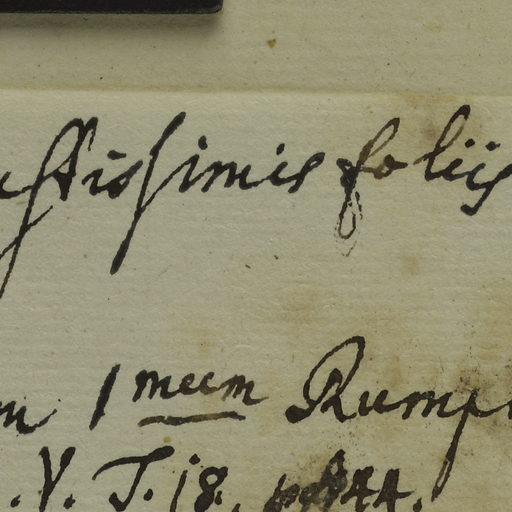 ustissimis foliis
m 1 meum Rump
. V. T. 18. 44.